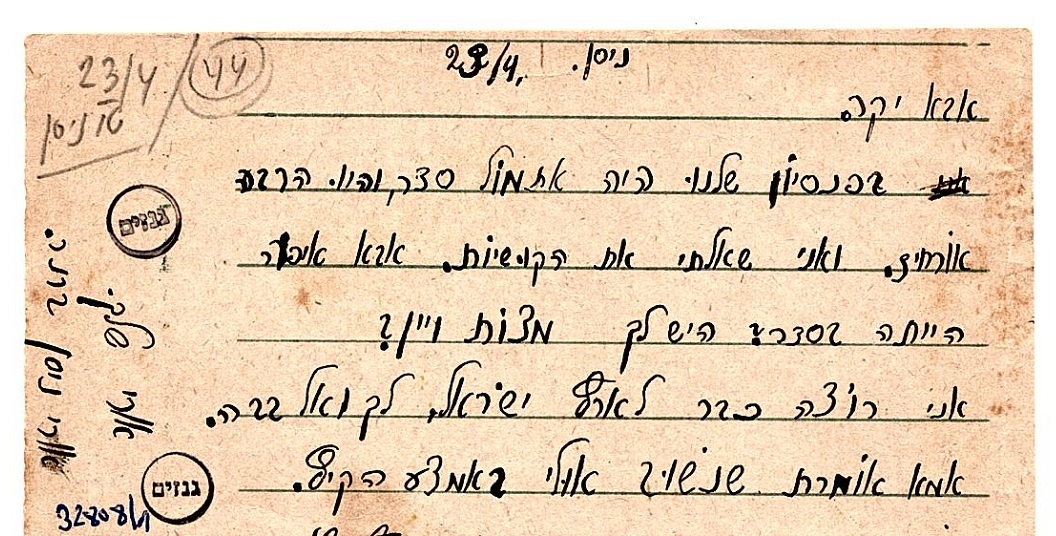 23/4
44
ט״ו ניסן
ניסן. 23/4.
אבא יקר.
בפנסיון שלנו היה אתמול סדר, והיו הרבע
אורחים. ואני שאלתי את הקושיות. אבא איפה
היית�ה בסדר? היש לך מצות ויין?
אני רוצה כבר לארץ ישראל, לך ואל בבה.
אמא אומרת שנשוב אולי באמצע הקיץ.
גנזים
גנזים
32808/1